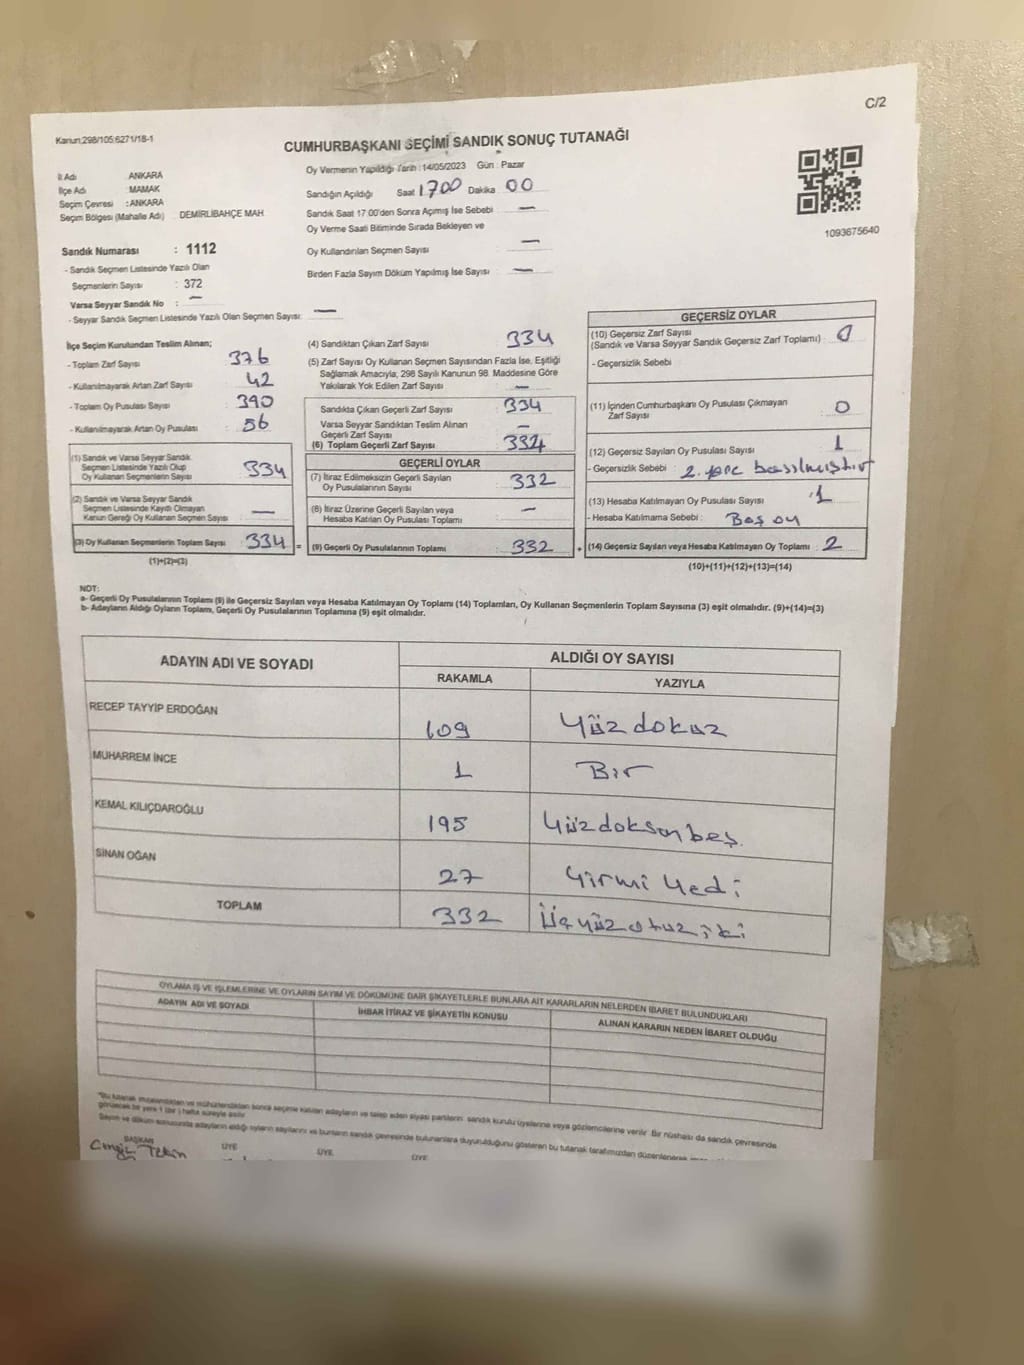 C/2
Kanun:298/105:6271/18-1
CUMHURBAŞKANI SEÇİMİ SANDIK SONUÇ TUTANAĞI
İl Adı ANKARA
İlçe Adı MAMAK
Seçim Çevresi : ANKARA
Seçim Bölgesi (Mahalle Adı) DEMİRLİBAHÇE MAH
Oy Vermenin Yapıldığı Tarih : 14/05/2023 Gün : Pazar
Sandığın Açıldığı Saat 1700 Dakika 00
Sandık Saat 17.00'den Sonra Açımış İse Sebebi —
Oy Verme Saati Bitiminde Sırada Bekleyen ve
Oy Kullandırılan Seçmen Sayısı —
Birden Fazla Sayım Döküm Yapılmış İse Sayısı —
1093675640
Sandık Numarası : 1112
- Sandık Seçmen Listesinde Yazılı Olan
Seçmenlerin Sayısı : 372
Varsa Seyyar Sandık No : —
- Seyyar Sandık Seçmen Listesinde Yazılı Olan Seçmen Sayısı: —
İlçe Seçim Kurulundan Teslim Alınan;
- Toplam Zarf Sayısı : 376
- Kullanılmayarak Artan Zarf Sayısı : 42
- Toplam Oy Pusulası Sayısı : 390
- Kullanılmayarak Artan Oy Pusulası : 56
(1) Sandık ve Varsa Seyyar Sandık
Seçmen Listesinde Yazılı Olup
Oy Kullanan Seçmen Sayısı : 334
(2) Sandık ve Varsa Seyyar Sandık
Seçmen Listesinde Kayıtlı Olmayan
Kanun Gereği Oy Kullanan Seçmen Sayısı : —
(3) Oy Kullanan Seçmenlerin Toplam Sayısı : 334 =
(1)+(2)=(3)
(4) Sandıktan Çıkan Zarf Sayısı : 334
(5) Zarf Sayısı Oy Kullanan Seçmen Sayısından Fazla İse, Eşitliği
Sağlamak Amacıyla, 298 Sayılı Kanunun 98. Maddesine Göre
Yakılarak Yok Edilen Zarf Sayısı : —
Sandıkta Çıkan Geçerli Zarf Sayısı : 334
Varsa Seyyar Sandıktan Teslim Alınan
Geçerli Zarf Sayısı : —
(6) Toplam Geçerli Zarf Sayısı : 334
GEÇERLİ OYLAR
(7) İtiraz Edilmeksizin Geçerli Sayılan
Oy Pusulalarının Sayısı : 332
(8) İtiraz Üzerine Geçerli Sayılan veya
Hesaba Katılan Oy Pusulası Toplamı : —
(9) Geçerli Oy Pusulalarının Toplamı : 332 +
GEÇERSİZ OYLAR
(10) Geçersiz Zarf Sayısı
(Sandık ve Varsa Seyyar Sandık Geçersiz Zarf Toplamı) : 0
- Geçersizlik Sebebi :
(11) İçinden Cumhurbaşkanı Oy Pusulası Çıkmayan
Zarf Sayısı : 0
(12) Geçersiz Sayılan Oy Pusulası Sayısı : 1
- Geçersizlik Sebebi : 2. yere basılmıştır
(13) Hesaba Katılmayan Oy Pusulası Sayısı : 1
- Hesaba Katılmama Sebebi : Boş oy
(14) Geçersiz Sayılan veya Hesaba Katılmayan Oy Toplamı : 2
(10)+(11)+(12)+(13)=(14)
NOT:
a- Geçerli Oy Pusulalarının Toplamı (9) ile Geçersiz Sayılan veya Hesaba Katılmayan Oy Toplamı (14) Toplamları, Oy Kullanan Seçmenlerin Toplam Sayısına (3) eşit olmalıdır. (9)+(14)=(3)
b- Adayların Aldığı Oyların Toplamı, Geçerli Oy Pusulalarının Toplamına (9) eşit olmalıdır.
ADAYIN ADI VE SOYADI
ALDIĞI OY SAYISI
RAKAMLA YAZIYLA
RECEP TAYYİP ERDOĞAN 109 Yüz dokuz
MUHARREM İNCE 1 Bir
KEMAL KILIÇDAROĞLU 195 Yüzdoksan beş.
SİNAN OĞAN 27 Yirmi yedi
TOPLAM 332 Üç yüz otuz iki
OYLAMA İŞ VE İŞLEMLERİNE VE OYLARIN SAYIM VE DÖKÜMÜNE DAİR ŞİKAYETLERLE BUNLARA AİT KARARLARIN NELERDEN İBARET BULUNDUKLARI
ADAYIN ADI VE SOYADI İHBAR İTİRAZ VE ŞİKAYETİN KONUSU ALINAN KARARIN NEDEN İBARET OLDUĞU
*Bu tutanak imzalandıktan ve mühürlendikten sonra seçime katılan adayların ve talep eden siyasi partilerin sandık kurulu üyelerine veya gözlemcilerine verilir. Bir nüshası da sandık çevresinde
görülecek bir yere 1 (bir) hafta süreyle asılır
Sayım ve döküm sonucunda adayların aldığı oyların sayılarını ve bunların sandık çevresinde bulunanlara duyurulduğunu gösteren bu tutanak tarafımızdan düzenlenerek
BAŞKAN ÜYE ÜYE ÜYE
Cengiz Tekin